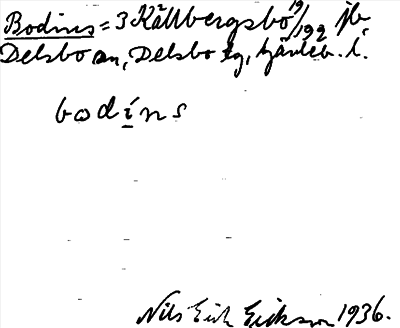 Bodins = 3 Källbergsbo 19/192 jb
Delsbo sn, Delsbo tg, Gävleb. l.
bodins
Nils Erik Erikson 1936.